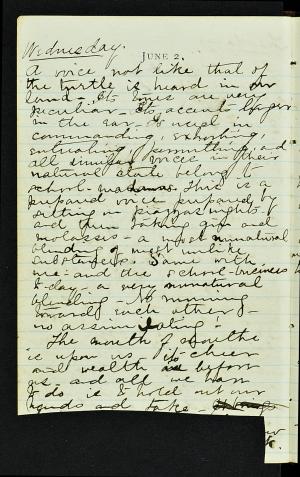 Wednesday.
JUNE 2.
A voice not like that of
the turtle is heard in our
land. Its tones are very
peculiar - Its accents linger
in the ear. It used in
commanding, exhorting,
entreating, permitting, and
all similar voices in their
natural state belong to
school-ma'ams. This is a
prepared voice prepared by
sitting on piazzas nights
and then taking gin and
molasses - a most unnatural
blending of most unlike
substances. Same with
me - and the school-business
to-day - a very unnatural
blending - No running
towards each other -
no assimilating -
The month of months
is upon us. Its cheer
and wealth are before
us - and all we have
to do is to hold out our
hands and take -